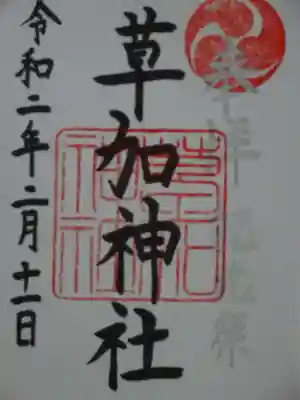 奉拝
草加神社
令和二年二月十一日